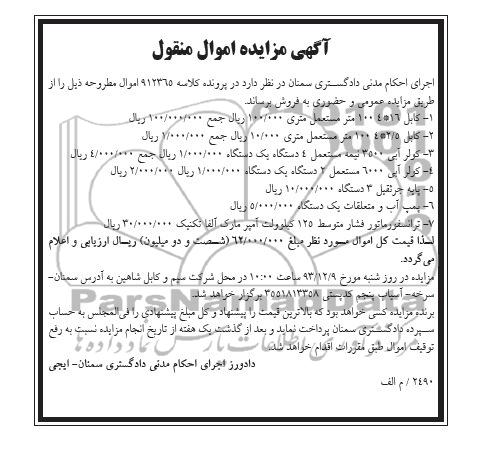 آگهی مزایده اموال منقول
اجرای احکام مدنی دادگستری سمنان در نظر دارد در پرونده کلاسه ۹۱۲۳۶۵ اموال مطروحه ذیل را از
طریق مزایده عمومی و حضوری به فروش برساند.
۱- کابل ۱۶*۴ ۱۰۰ متر مستعمل متری ۱۰۰/۰۰۰ ریال جمع ۱۰/۰۰۰/۰۰۰ ریال
۲- کابل ۲/۵*۴ ۱۰۰ متر مستعمل متری ۱۰/۰۰۰ ریال جمع ۱/۰۰۰/۰۰۰ ریال
۳- کولر آبی ۳۵۰۰ نیمه مستعمل ۴ دستگاه یک دستگاه ۱/۰۰۰/۰۰۰ ریال جمع ۴/۰۰۰/۰۰۰ ریال
۴- کولر آبی ۶۰۰۰ مستعمل ۲ دستگاه یک دستگاه ۱/۰۰۰/۰۰۰ ریال ۲/۰۰۰/۰۰۰ ریال
۵- پایه جرثقیل ۳ دستگاه ۱۰/۰۰۰/۰۰۰ ریال
۶- پمپ آب و متعلقات یک دستگاه ۵/۰۰۰/۰۰۰ ریال
۷- ترانسفورماتور فشار متوسط ۱۲۵ کیلوولت آمپر مارک آلفا تکنیک ۳۰/۰۰۰/۰۰۰ ریال
لذا قیمت کل اموال مورد نظر مبلغ ۶۲/۰۰۰/۰۰۰ (شصت و دو میلیون) ریال ارزیابی و اعلام
می‌گردد.
مزایده در روز شنبه مورخ ۹۳/۱۲/۹ ساعت ۱۰:۰۰ در محل شرکت سیم و کابل شاهین به آدرس سمنان-
سرخه- آسیاب پنجم کدپستی ۳۵۵۱۸۱۳۳۵۸ برگزار خواهد شد.
برنده مزایده کسی خواهد بود که بالاترین قیمت را پیشنهاد و کل مبلغ پیشنهادی را فی‌المجلس به حساب
سپرده دادگستری سمنان پرداخت نماید و بعد از گذشت یک هفته از تاریخ انجام مزایده نسبت به رفع
توقیف اموال طبق مقررات اقدام خواهد شد.
دادورز اجرای احکام مدنی دادگستری سمنان- ایجی
۲۴۹۰ / م الف
ParsNamadData